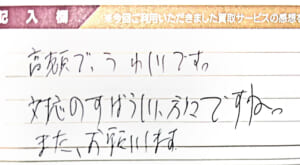 記入欄 ※今回ご利用いただきました買取サービスの感想を
高額で、うれしいです。
対応のすばらしい方々ですね。
また、お願いします